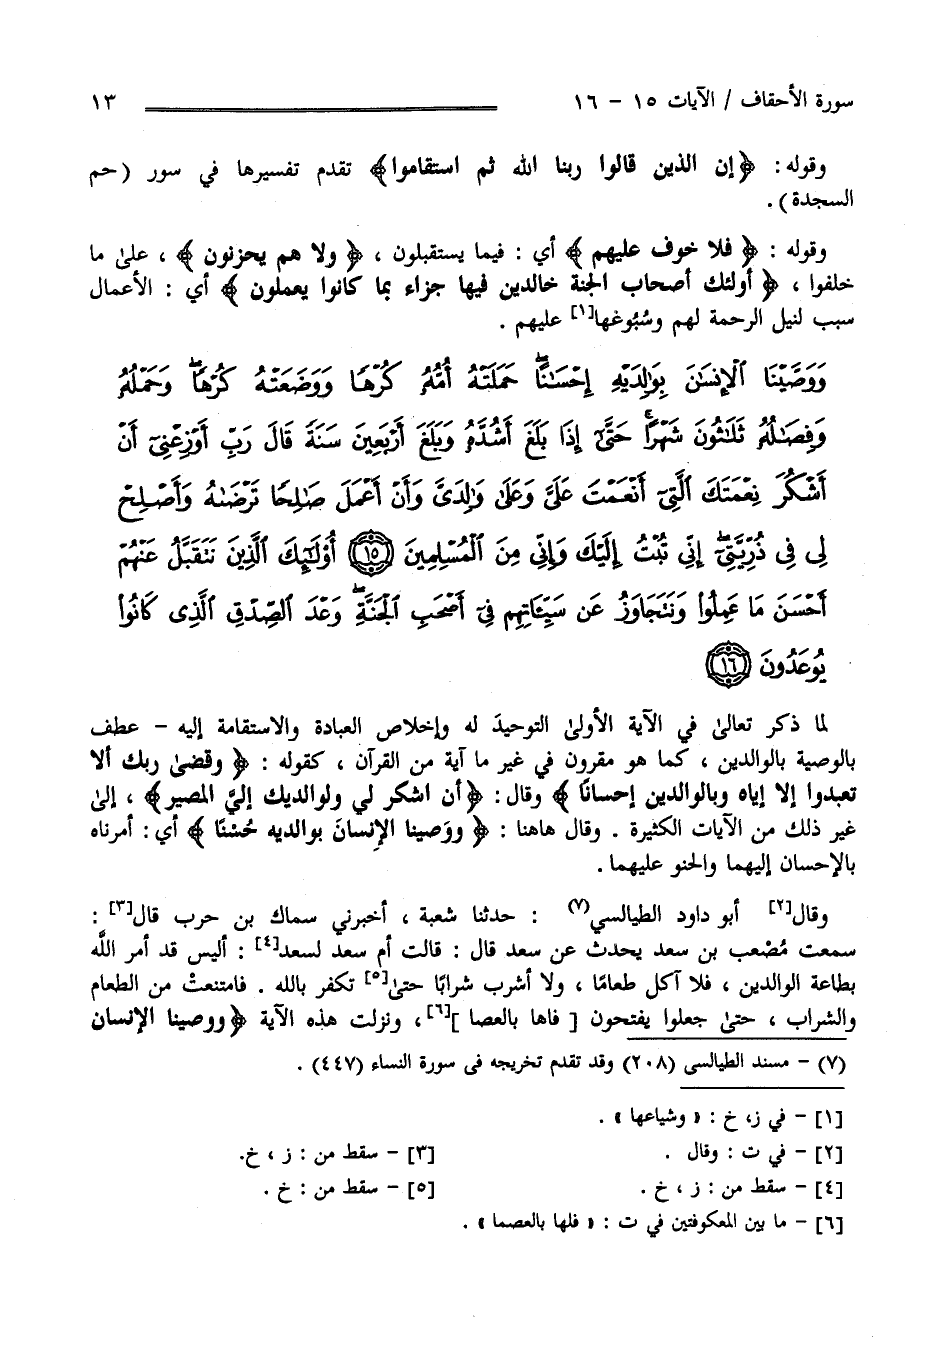 سورة الأحقاف / الآيات ١٥ - ١٦ ١٣
وقوله : ﴿ إن الذين قالوا ربنا الله ثم استقاموا﴾ تقدم تفسيرها في سور (حم
السجدة) .
وقوله : ﴿ فلا خوف عليهم ﴾ أي : فيما يستقبلون ، ﴿ ولا هم يحزنون ﴾ ، علىٰ ما
خلفوا ، ﴿ أولئك أصحاب الجنة خالدين فيها جزاء بما كانوا يعملون ﴾ أي : الأعمال
سبب لنيل الرحمة لهم وسُبُوغها[١] عليهم .
وَوَصَّيْنَا ٱلْإِنسَٰنَ بِوَٰلِدَيْهِ إِحْسَٰنًا ۖ حَمَلَتْهُ أُمُّهُۥ كُرْهًا وَوَضَعَتْهُ كُرْهًا ۖ وَحَمْلُهُۥ
وَفِصَٰلُهُۥ ثَلَٰثُونَ شَهْرًا ۚ حَتَّىٰٓ إِذَا بَلَغَ أَشُدَّهُۥ وَبَلَغَ أَرْبَعِينَ سَنَةً قَالَ رَبِّ أَوْزِعْنِىٓ أَنْ
أَشْكُرَ نِعْمَتَكَ ٱلَّتِىٓ أَنْعَمْتَ عَلَىَّ وَعَلَىٰ وَٰلِدَىَّ وَأَنْ أَعْمَلَ صَٰلِحًا تَرْضَىٰهُ وَأَصْلِحْ
لِى فِى ذُرِّيَّتِىٓ ۖ إِنِّى تُبْتُ إِلَيْكَ وَإِنِّى مِنَ ٱلْمُسْلِمِينَ ١٥ أُو۟لَٰٓئِكَ ٱلَّذِينَ نَتَقَبَّلُ عَنْهُمْ
أَحْسَنَ مَا عَمِلُوا۟ وَنَتَجَاوَزُ عَن سَيِّـَٔاتِهِمْ فِىٓ أَصْحَٰبِ ٱلْجَنَّةِ ۖ وَعْدَ ٱلصِّدْقِ ٱلَّذِى كَانُوا۟
يُوعَدُونَ ١٦
لما ذكر تعالىٰ في الآية الأولىٰ التوحيدَ له وإخلاص العبادة والاستقامة إليه - عطف
بالوصية بالوالدين ، كما هو مقرون في غير ما آية من القرآن ، كقوله : ﴿ وقضىٰ ربك ألا
تعبدوا إلا إياه وبالوالدين إحسانًا ﴾ وقال : ﴿أن اشكر لي ولوالديك إليَّ المصير﴾ ، إلىٰ
غير ذلك من الآيات الكثيرة . وقال هاهنا : ﴿ ووَصينا الإنسانَ بوالديه حُسْنًا ﴾ أي : أمرناه
بالإحسان إليهما والحنو عليهما .
وقال[٢] أبو داود الطيالسي(٧) : حدثنا شعبة ، أخبرني سماك بن حرب قال[٣] :
سمعت مُصْعب بن سعد يحدث عن سعد قال : قالت أم سعد لسعد[٤] : أليس قد أمر اللَّه
بطاعة الوالدين ، فلا آكل طعامًا ، ولا أشرب شرابًا حتىٰ[٥] تكفر بالله . فامتنعتْ من الطعام
والشراب ، حتىٰ جعلوا يفتحون [ فاها بالعصا ][٦] ، ونزلت هذه الآية ﴿ووصينا الإنسان
(٧) - مسند الطيالسي (٢٠٨) وقد تقدم تخريجه في سورة النساء (٤٤٧) .
[١] - في ز، خ : « وشياعها » .
[٢] - في ت : وقال . [٣] - سقط من : ز ، خ.
[٤] - سقط من : ز ، خ . [٥] - سقط من : خ .
[٦] - ما بين المعكوفتين في ت : « فلها بالعصما » .